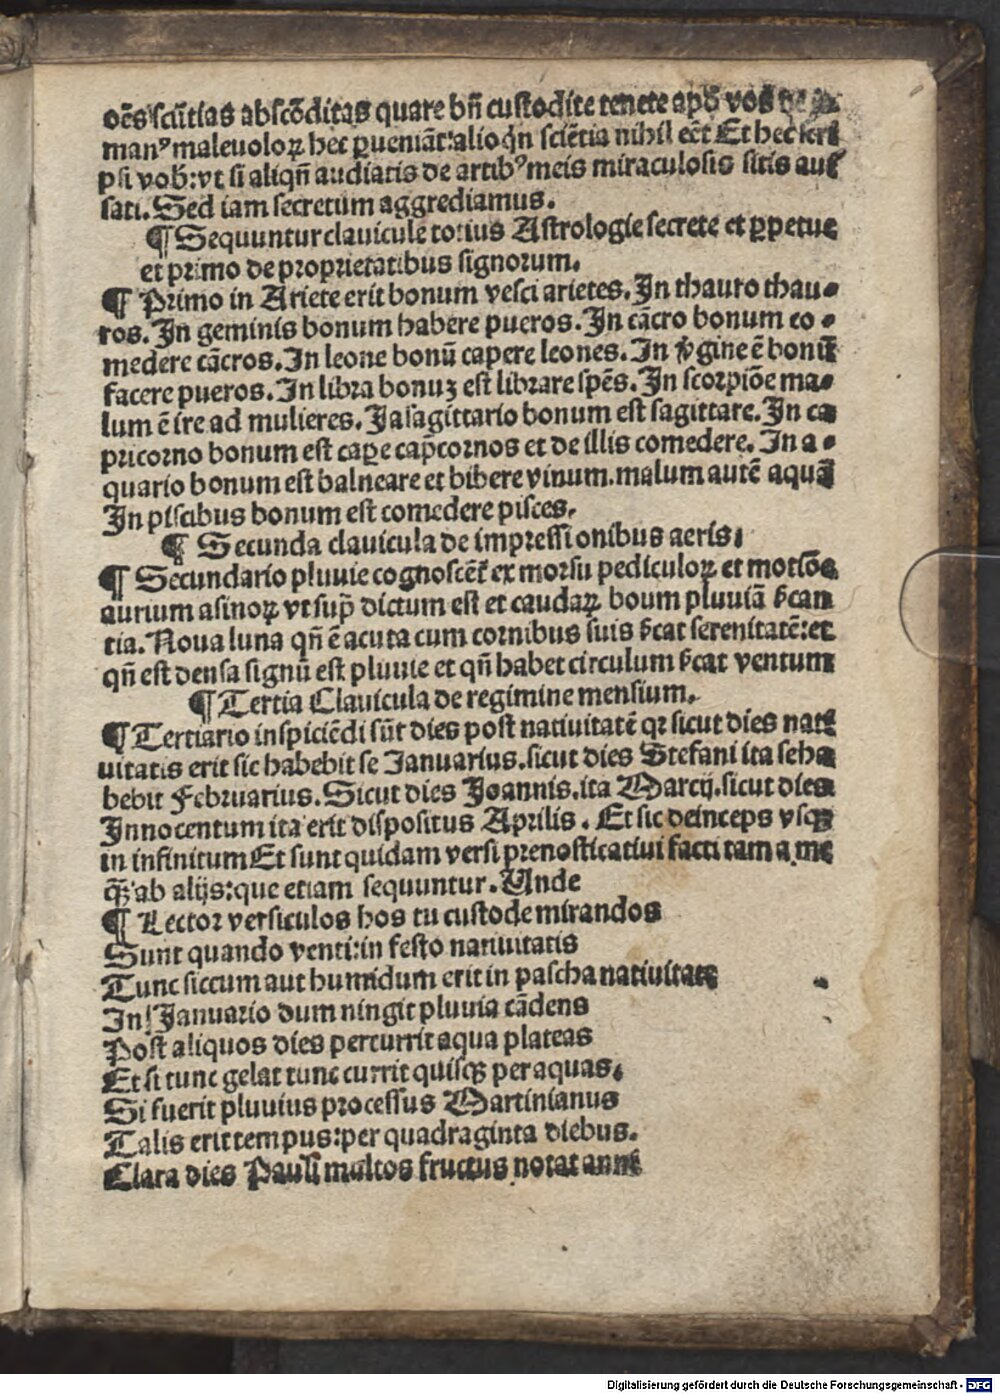 oēs scūtias abscōditas quare bn̄ custodite tenete apđ vos
manꝰ maleuoloꝝ hec ꝑueniāt: alioqͥn sciētia nihil eēt Et hec scri
psi vob: vt si aliqn̄ audiatis de artibꝰ meis miraculosis sitis aus
sati. Sed iam secretum aggrediamus.
¶ Sequuntur clauicule totius Astrologie secrete et ꝑpetue
et primo de proprietatibus signorum.
¶ Primo in Ariete erit bonum vesci arietes. In thauro thau-
ros. In geminis bonum habere pueros. In cācro bonum co-
medere cācros. In leone bonū capere leones. In v̄gine ē bonū
facere pueros. In libra bonuꝫ est librare spēs. In scorpiōe ma-
lum ē ire ad mulieres. In sagittario bonum est sagittare. In ca
pricorno bonum est caꝑe cap̄cornos et de illis comedere. In a-
quario bonum est balneare et bibere vinum. malum autē aquā
In piscibus bonum est comedere pisces.
¶ Secunda clauicula de impressionibus aeris.
¶ Secundario pluuie cognoscēt̄ ex morsu pediculoꝝ et motiōe
aurium asinoꝝ vt sup̄ dictum est et caudaꝝ boum pluuiā s̄can
tia. Noua luna qn̄ ē acuta cum cornibus suis s̄cat serenitatē: et
qn̄ est densa signū est pluuie et qn̄ habet circulum s̄cat ventum
¶ Tertia Clauicula de regimine mensium.
¶ Tertiario inspiciēdi sūt dies post natiuitatē qꝛ sicut dies nati
uitatis erit sic habebit se Januarius. sicut dies Stefani ita seha
bebit Februarius. Sicut dies Joannis. ita Marcij. sicut dies
Innocentum ita erit dispositus Aprilis. Et sic deinceps vsqꝫ
in infinitum Et sunt quidam versi prenosticatiui facti tam a me
qꝫ ab alijs: que etiam sequuntur. Unde
¶ Lector versiculos hos tu custode mirandos
Sunt quando venti: in festo natiuitatis
Tunc siccum aut humidum erit in pascha natiuitate
In Januario dum ningit pluuia cādens
Post aliquos dies percurrit aqua plateas
Et si tunc gelat tunc currit quisqꝫ per aquas.
Si fuerit pluuius processus Martinianus
Talis erit tempus: per quadraginta diebus.
Clara dies Pauli multos fructus notat anni
Digitalisierung gefördert durch die Deutsche Forschungsgemeinschaft - DFG